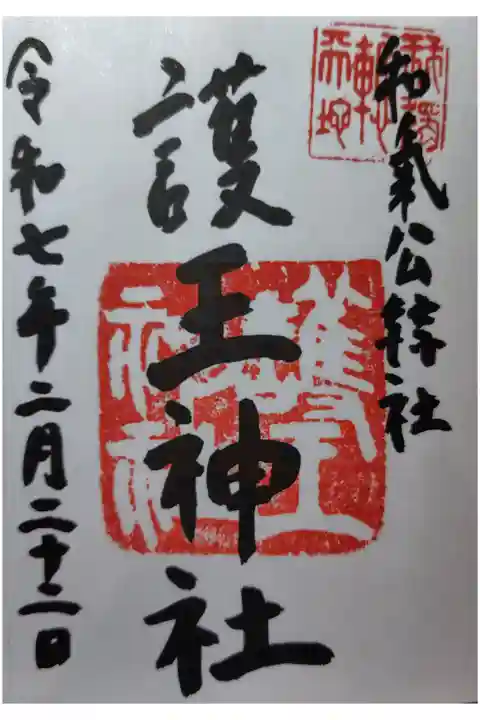 和氣公社
護王神社
護王神社
令和七年二月二十二日